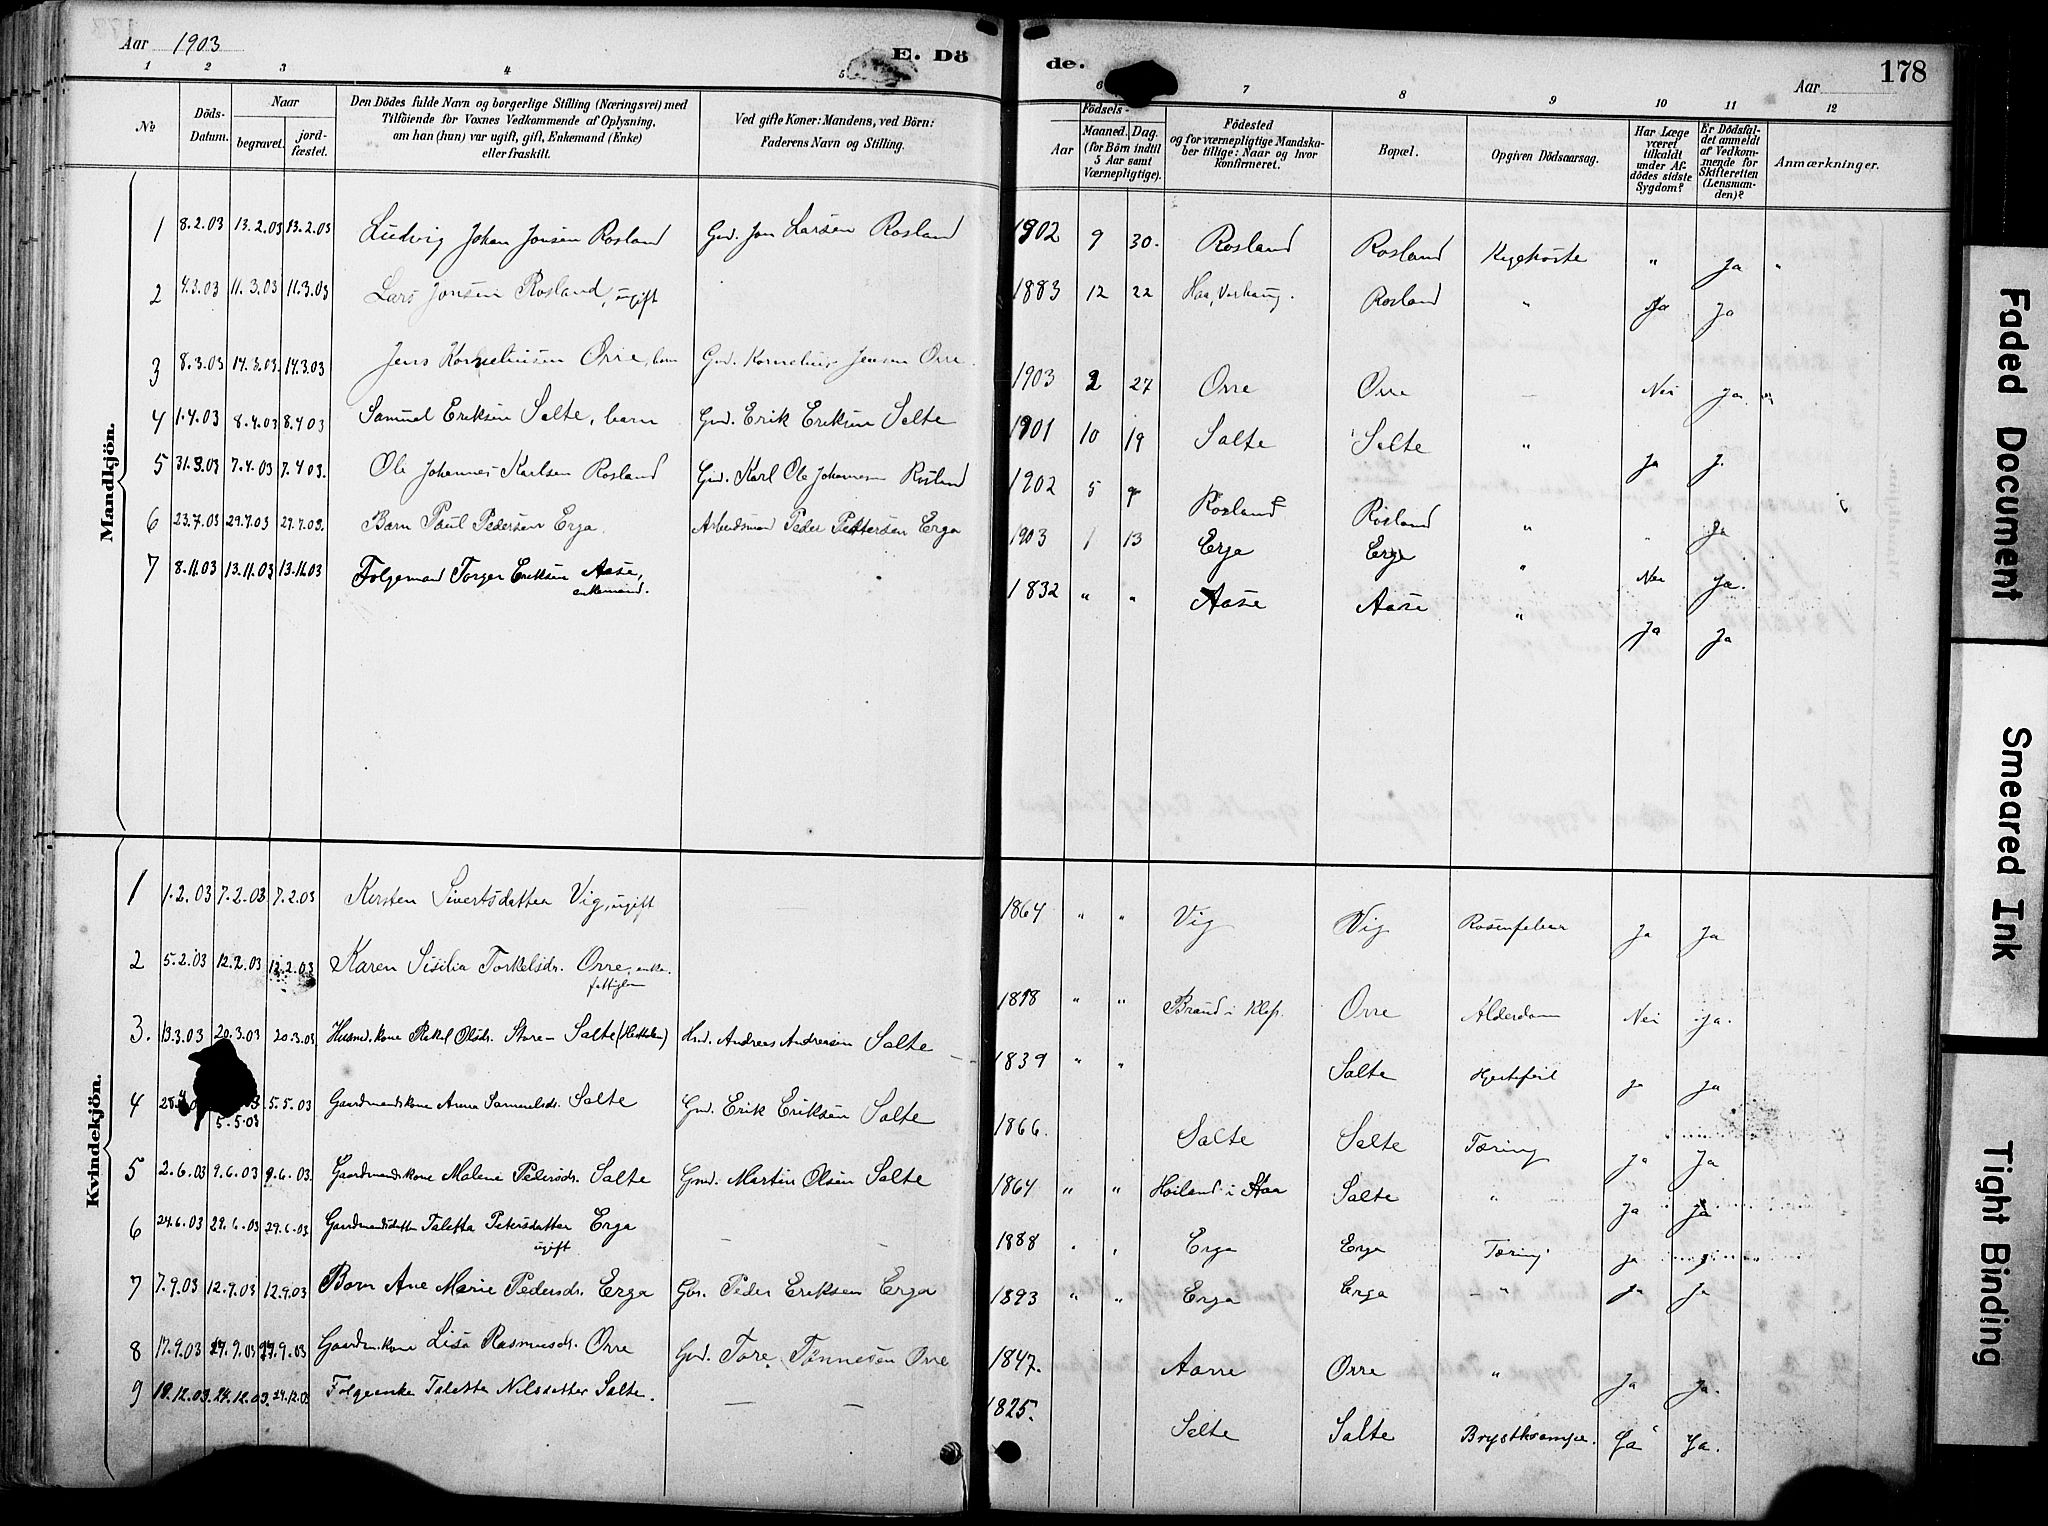 Aar 1903
E. Dö
de.
Aar
178
1 2 3 4 5 6 7 8 9 10 11 12
No
Döds-Datum.
Naar
begravet.
jord-fæstet.
Den Dödes fulde Navn og borgerlige Stilling (Næringsvei) med
Tilföiende for Voxnes Vedkommende af Oplysning,
om han (hun) var ugift, gift, Enkemand (Enke)
eller fraskilt.
Ved gifte Koner: Mandens, ved Börn:
Faderens Navn og Stilling.
Födsels-
Aar
Maaned. Dag.
(for Börn indtil
5 Aar samt
Værnepligtige).
Födested
og for værnepligtige Mandska-
ber tillige: Naar og hvor
konfirmeret.
Bopæl.
Opgiven Dödsaarsag.
Har Læge
været
tilkaldt
under Af-
dödes sidste
Sygdom?
Er Dödsfal-
det anmeldt
af Vedkom-
mende for
Skifteretten
(Lensman-
den)?
Anmærkninger.
Mandkjön.
1 8.2.03 13.2.03 13.2.03 Ludvig Johan Jonsen Rosland Grd. Jon Larsen Rosland 1902 9 30. Rosland Rosland Kighoste " Ja "
2 4.3.03 11.3.03 11.3.03 Lars Jonsen Rosland, ugift 1883 12 22 Haa, Rosland " Ja Ja
3 8.3.03 14.3.03 14.3.03 Jens Korneliusen Orre, barn Grd. Kornelius Jensen Orre 1903 2 27 Orre Orre Nei Ja
4 1.4.03 8.4.03 8.4.03 Samuel Eriksen Salte, barn Grd. Erik Eriksen Salte 1901 10 19 Salte Salte " Ja J.
5 31.3.03 7.4.03 7.4.03. Ole Johannes Karlsen Rosland Grd. Karl Ole Johannesen Rosland 1902 5 Rosland Rosland " " Ja
6 23.7.03 29.7.03 29.7.03. Barn Paul Pedersen Erga Arbeidsmand Peder Pettersen Erga 1903 1 13 Erga Erga " Nei Ja.
7 8.11.03 13.11.03 13.11.03 Folgemand Torger Eriksen Aase,
enkemand. 1832 " " Aase Aase " Ja Ja
Kvindekjön.
1 1.2.03 7.2.03 7.2.03 Kirsten Sivertsdatter Vig, ugift 1864 " " Vig Vig Ja Ja
2 5.2.03 12.2.03 12.2.03 Karen Sisilia Torkelsdr. Orre, enke.
fattiglem " " Brand i Klep. Orre Alderdom Nei Ja.
3. 13.3.03 20.3.03 20.3.03 Husmd.kone Rakel Olsdr. Store-Salte Hmd. Andreas Andreasen Salte 1839 " " Salte Hjertefeil Ja Ja
4 5.5.03 5.5.03 Gaardmandskone Anna Samuelsdr. Salte Grd. Erik Eriksen Salte 1866. Salte Salte Tæring Ja Ja
5 2.6.03 9.6.03 9.6.03. Gaardmandskone Malene Pedersdr. Salte Grmd. Martin Olsen Salte 1864 " " Hoiland i Haa Salte " Ja Ja
6 24.6.03 29.6.03 29.6.03 Gaardmandsdatter Taletta Petersdatter Erga
ugift 1888 Erga Erga Tæring Ja
7 7.9.03 12.9.03 12.9.03 Barn Ane Marie Pedersdr. Erga Gbr. Peder Eriksen Erga 1893 " " Erga Erga " Ja Ja
8 17.9.03 9.03 9.03 Gaardm.kone Lisa Rasmusdr. Orre Grd. Tore Tønnesen Orre 1847. Aarre Orre " Ja Ja.
9 18.12.03. 24.12.03. 24.12.03 Folgeenke Taletta Nilsdatter Salte. 1825. Salte Salte Brystkrampe. Ja Ja.
Faded Document
Smeared Ink
Tight Binding